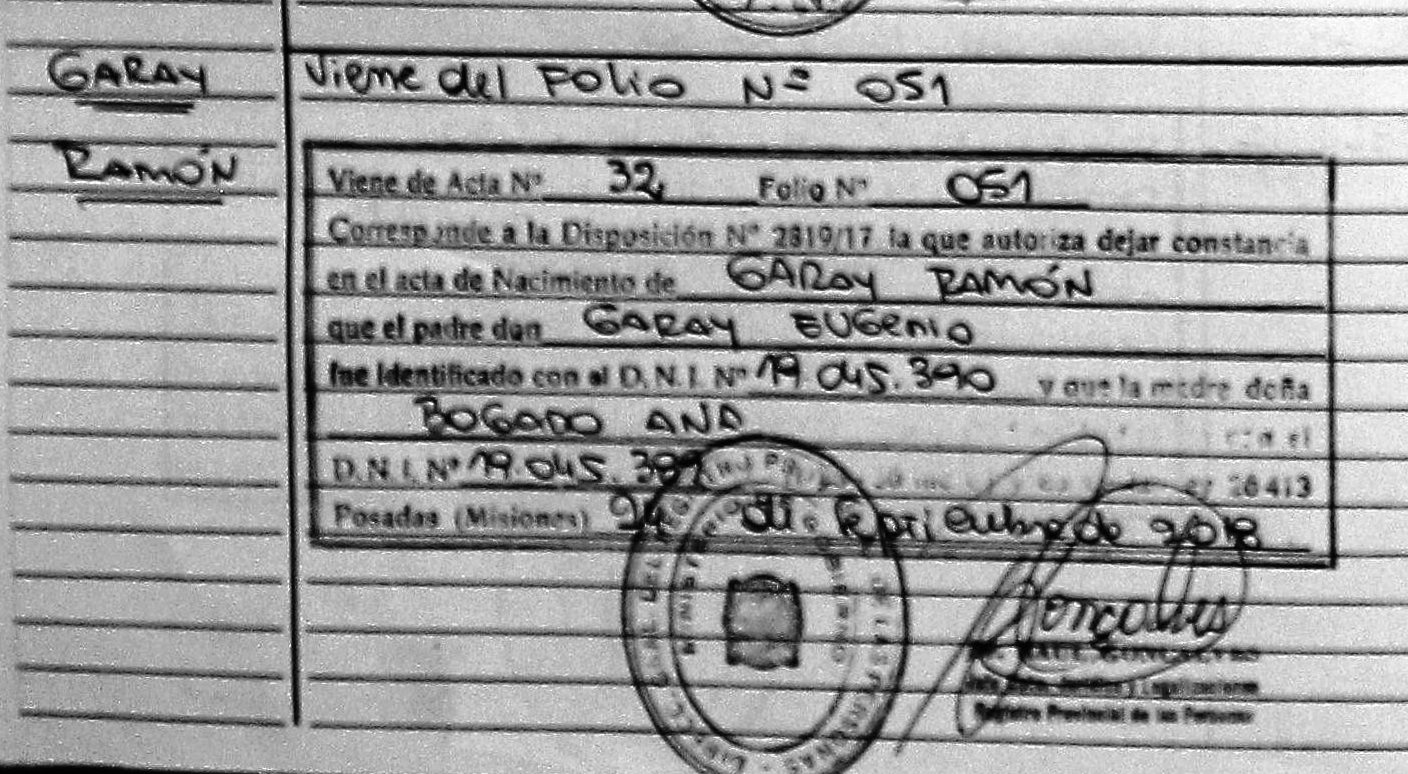 GARAY
RAMÓN
Viene del Folio Nº 051
Viene de Acta Nº 32 Folio Nº 051
Corresponde a la Disposición Nº 2819/17 la que autoriza dejar constancia
en el acta de Nacimiento de GARAY RAMÓN
que el padre don GARAY EUGENIO
fue identificado con el D.N.I. Nº 19.045.390 y que la madre doña
BOGADO ANA con el
D.N.I. Nº 19.045.389 26413
Posadas (Misiones) 24 de Septiembre de 2018
MINISTERIO DE GOBIERNO
DE LAS PERSONAS
Goncalves
Jurídica y Legalizaciones
Registro Provincial de las Personas